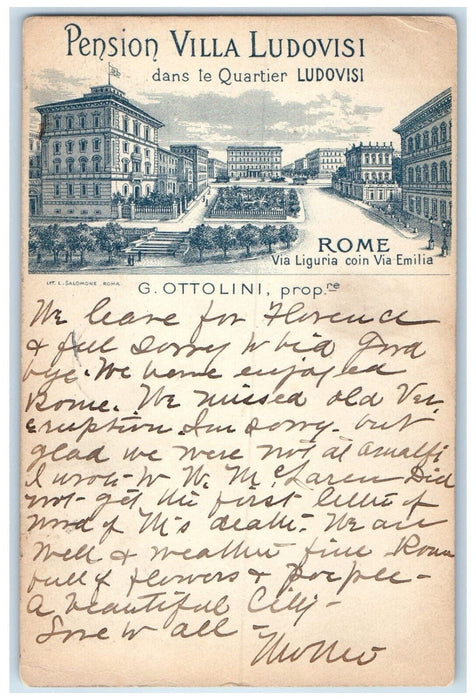 Pension VILLA LUDOVISI
dans le Quartier LUDOVISI
ROME
Via Liguria coin Via Emilia
LIT. L. SALOMONE, ROMA
G. OTTOLINI, prop.re
We leave for Florence
& feel sorry to bid good
bye. We have enjoyed
Rome. We missed old Ves.
eruption I'm sorry. but
glad we were not at Amalfi
I wrote to W. McLaren Did
not get the first letter of
word of M's death. We are
well & weather fine Rome
full of flowers & people -
A beautiful City -
Love to all -